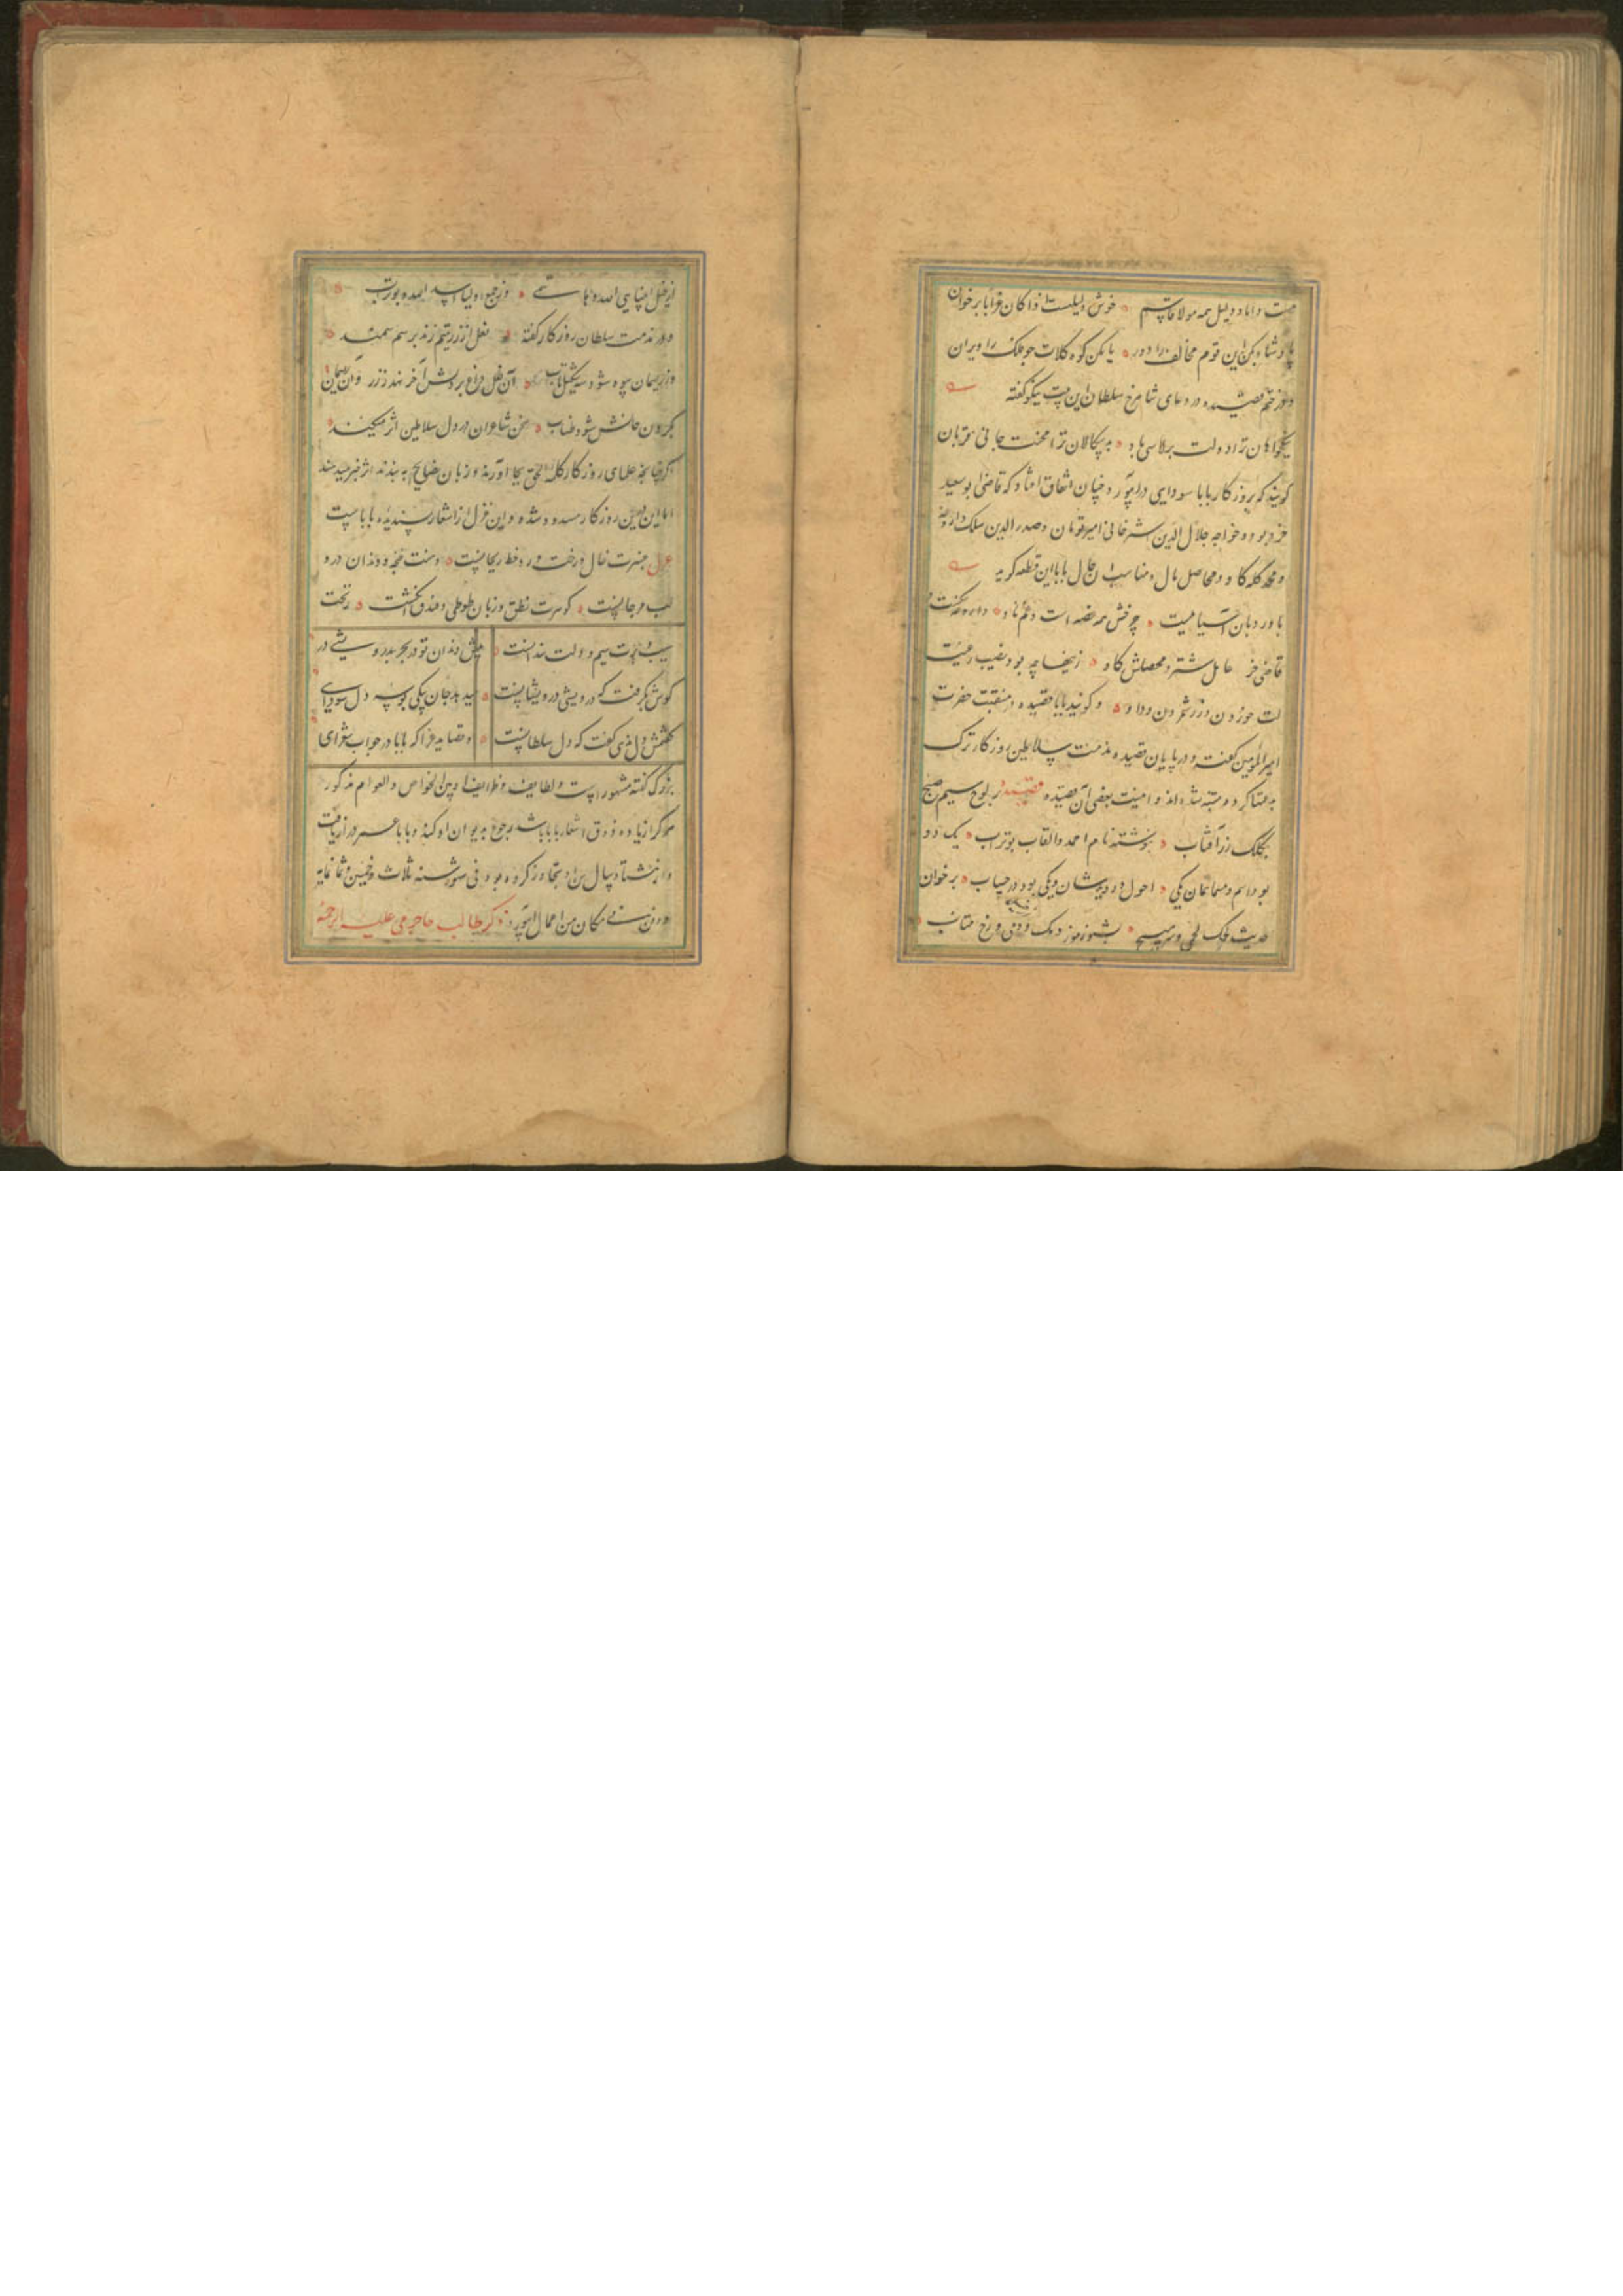 هست داماد و دلیل همه مولا قاسم خوش دلیلست اذا کان غرابا برخوان
پادشاها بکن این قوم مخالف را دور یا بکن کوه کلات جو ملک را ویران
و در ختم قصیده در دعای شاهرخ سلطان این بیت نیکو گفته
نیکخواهان ترا دولت برلاسی باد بدسگالان ترا محنت جانی قربان
گویند که بروزگار بابا سودایی در ابیورد چنان اتفاق افتاد که قاضی ابو سعید
خر بوده و خواجه جلال الدین شتر خانی امیر تومان و صدر الدین سلک داروغه
و محمد کله گاو محاصل مال و مناسب آن حال بابا این قطعه گوید
باورد بان آسیا میست چرخش همه غصه است و غم ناو داروغه سگست و
قاضی خر عامل شتر و محصلش گاو زینها چه بود نصیب رعیت
لت خوردن و زر شمردن و داو و گویند بابا قصیده در منقبت حضرت
امیر المومنین گفته و در پایان قصیده مذمت سلاطین روزگار ترک
کرد و متنبه شده اند و اینست بعضی آن قصیده قصیده بر لوح سیم صبح
بکلک زر آفتاب نوشته نام احمد و القاب بوتراب یک دو
بود اسم و مسماشان یکی احول دو دید ایشان و یکی بود در حساب برخوان
حدیث لحمک لحمی و سر مپیچ بشنو رموز دمک دمی و رخ متاب
از خیل انبیا هاشمی وز جمع اولیا اسد الله بوتراب
و در مذمت سلطان روزگار گفته نعل از زر یتیم زند بر سم سمند
وز ریسمان بیوه شود آن نعل داغ بر دلش آخر نهد ز زر وان ریسمان
بگردن جانش شود طناب سخن شاعران در دل سلاطین اثر میکند
اگر چنانچه علمای روزگار کلمة الحق بجا آورند و زبان نصایح به بندند اثر خیر میدهد
اما این در این روزگار مسدود شده و این غزل از اشعار پسندیده باباست
غزل عنبرت خال و رخت ورد و خط ریحانیست دهنت غنچه و دندان در و
لب مرجانیست گوهرت نطق و زبان طوطی و فندق انگشت زنخت
سیب و برت سیم و دولت مندانست پیش دندان تو در بحر بدر و سیتی در
گوش بگرفت که در ویشی درویشانیست میدهد جان بیکی بوسه دل سودایی
گفتمش دل مدهی گفت که دل سلطانیست و قصاید غرا که بابا در جواب شعرای
بزرگ گفته مشهورست و لطایف و ظرایف او بین الخواص و العوام مذکور
هر کرا زیاده ذوق اشعار بابا باشد رجوع به دیوان او کند و بابا عمر دراز یافت
و از هشتاد سال سن او تجاوز کرده بود فی شهور سنه ثلاث و خمسین و ثمانمایه
و دفن فی مکان من اعمال ابیورد ذکر طالب جاجرمی علیه الرحمة